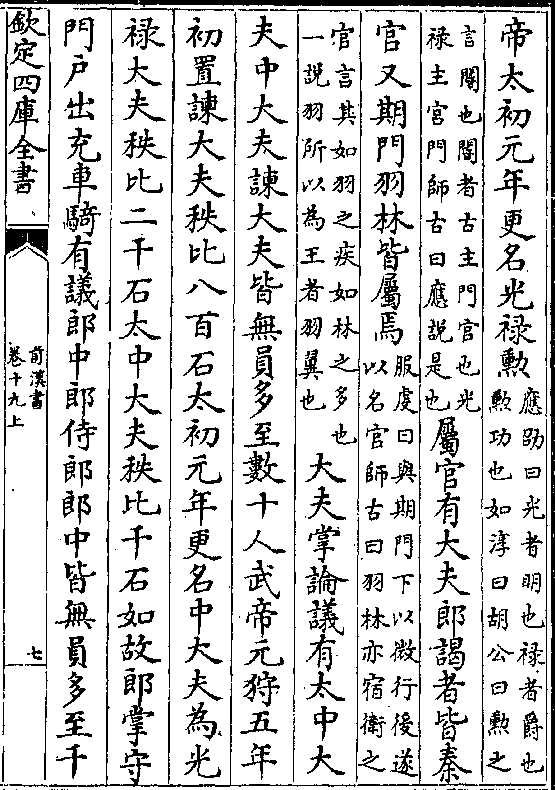 帝太初元年更名光禄勲應劭曰光者明也禄者爵也
勲功也如淳曰胡公曰勲之
言閽也閽者古主門官也光
禄主宮門師古曰應説是也
屬官有大夫郎謁者皆秦
官又期門羽林皆屬焉服虔曰與期門下以微行後遂
以名官師古曰羽林亦宿衛之
官言其如羽之疾如林之多也
一説羽所以為王者羽翼也
大夫掌論議有太中大
夫中大夫諫大夫皆無員多至數十人武帝元狩五年
初置諫大夫秩比八百石太初元年更名中大夫為光
禄大夫秩比二千石太中大夫秩比千石如故郎掌守
門戶出充車騎有議郎中郎侍郎郎中皆無員多至千
欽定四庫全書
前漢書
卷十九上
七